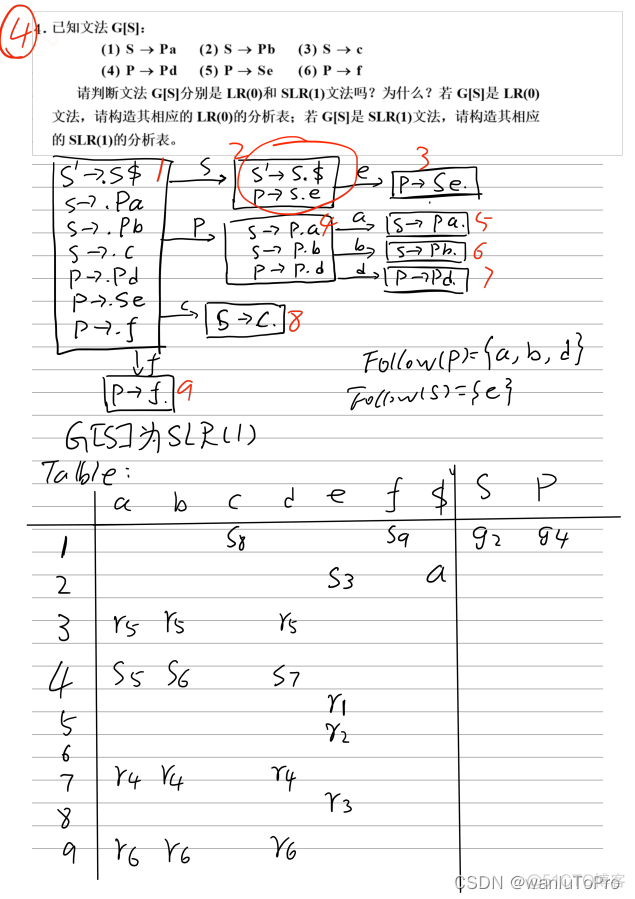 ④
1. 已知文法 G[S]：
(1) S → Pa (2) S → Pb (3) S → c
(4) P → Pd (5) P → Se (6) P → f
请判断文法 G[S]分别是 LR(0)和 SLR(1)文法吗？为什么？若 G[S]是 LR(0)
文法，请构造其相应的 LR(0)的分析表；若 G[S]是 SLR(1)文法，请构造其相应
的 SLR(1)的分析表。
S'→.S$ 1
S→.Pa
S→.Pb
S→.c
P→.Pd
P→.Se
P→.f
S
2
S'→S.$
P→S.e
e
3
P→Se.
P
S→P.a 4
S→P.b
P→P.d
a
S→Pa. 5
b
S→Pb. 6
d
P→Pd. 7
c
S→C. 8
f
P→f. 9
Follow(P)={a,b,d}
Follow(S)={e}
G[S]为SLR(1)
Table:
a b c d e f $ S P
1 S8 S9 g2 g4
2 S3 a
3 r5 r5 r5
4 S5 S6 S7
5 r1
6 r2
7 r4 r4 r4
8 r3
9 r6 r6 r6
CSDN @wanluToPro